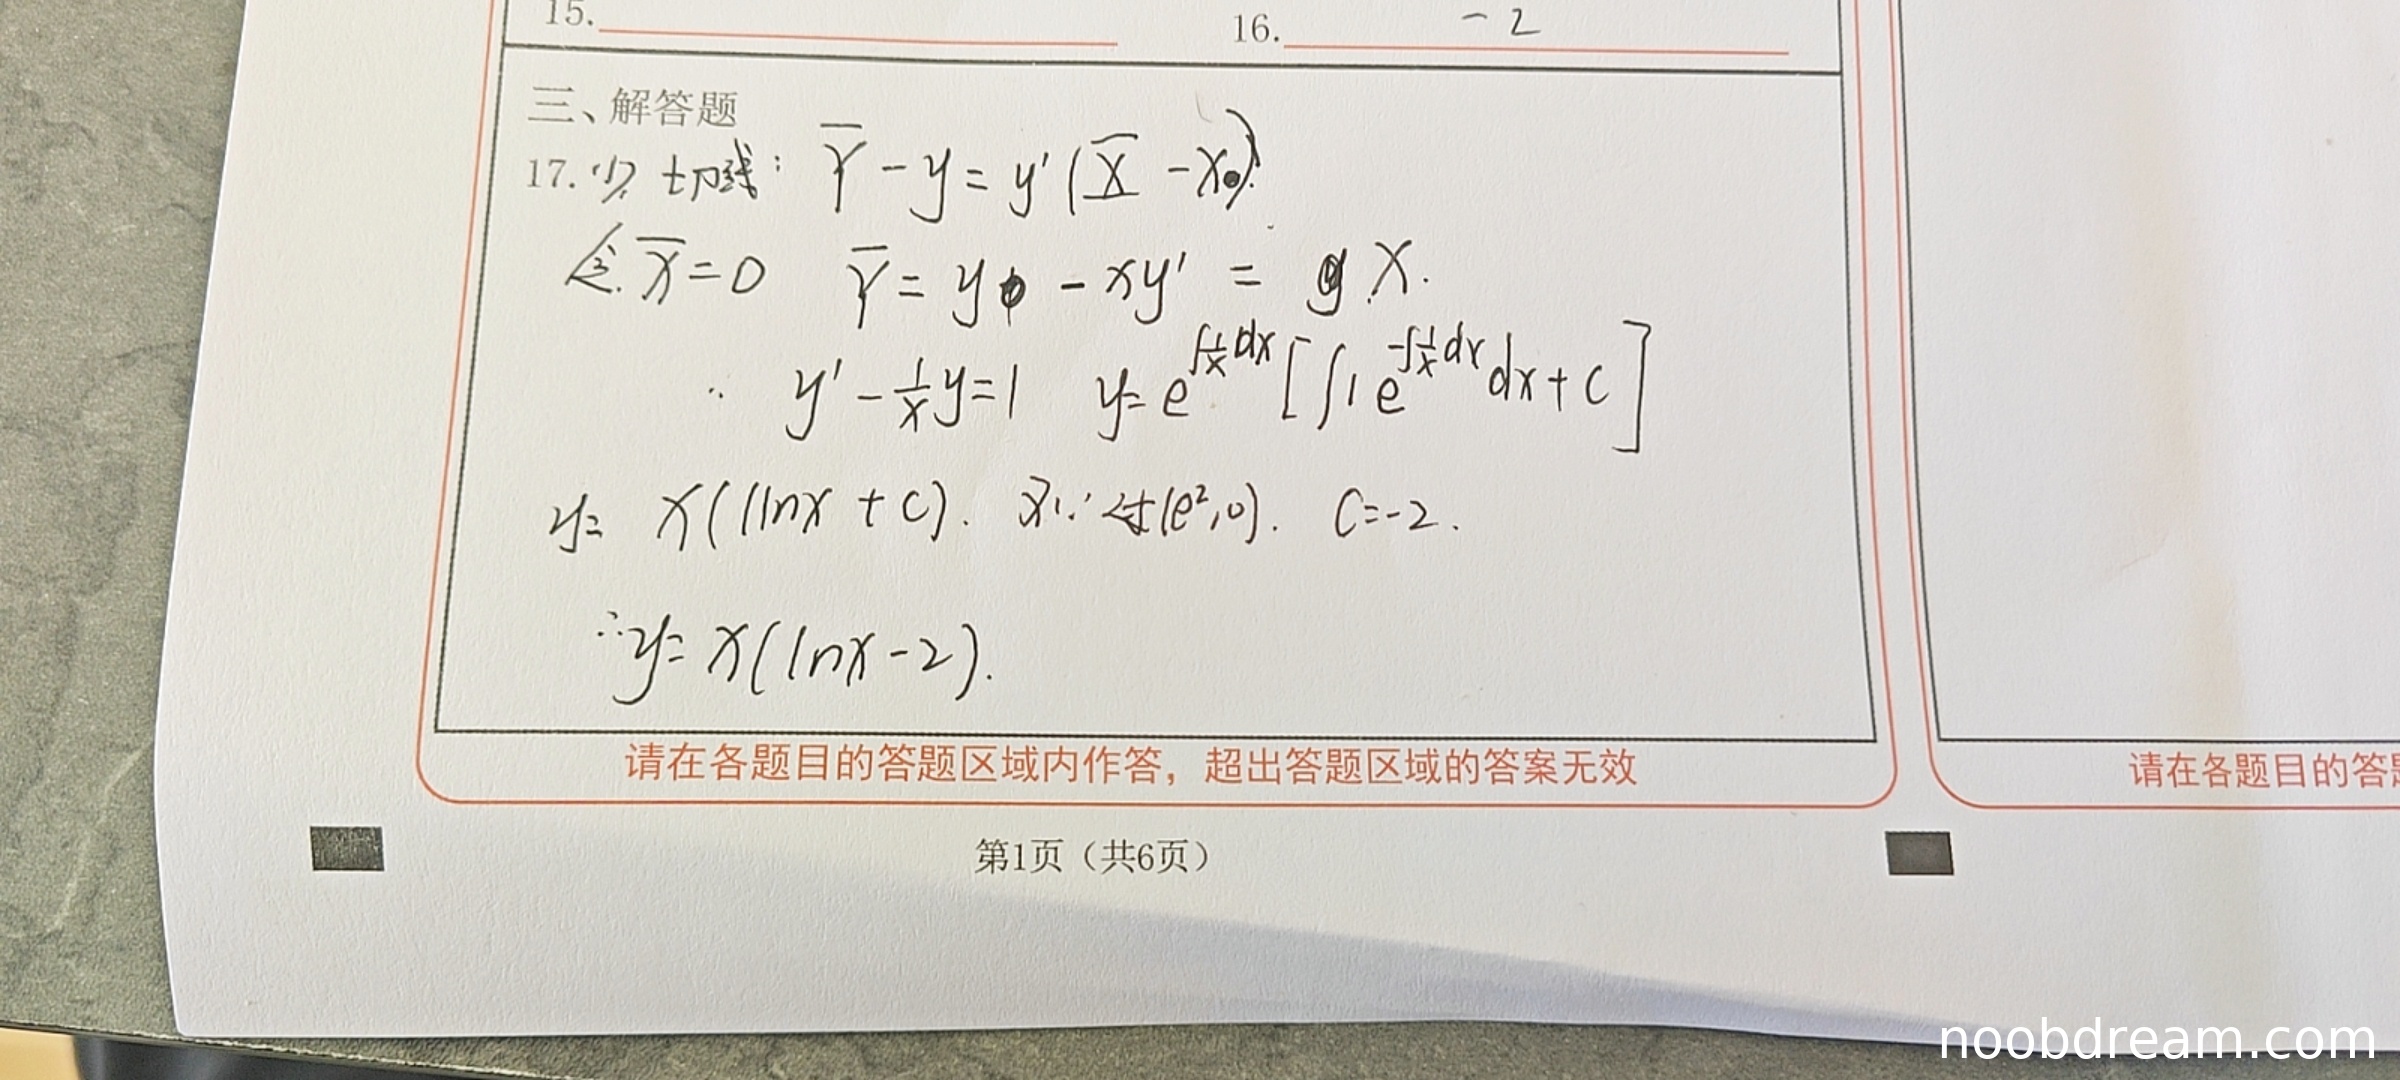 15.
16. -2
三、解答题
17. (1) 切线: Y - y = y' (X - x)
令 X = 0 Y = y - xy' = X.
∴ y' - 1/x y = 1 y = e^∫1/x dx [∫1 e^-∫1/x dx dx + C]
y = x(lnx + C). 又∵ 过(e², 0). C = -2.
∴ y = x(lnx - 2).
请在各题目的答题区域内作答，超出答题区域的答案无效
请在各题目的答题
第1页（共6页）
noobdream.com